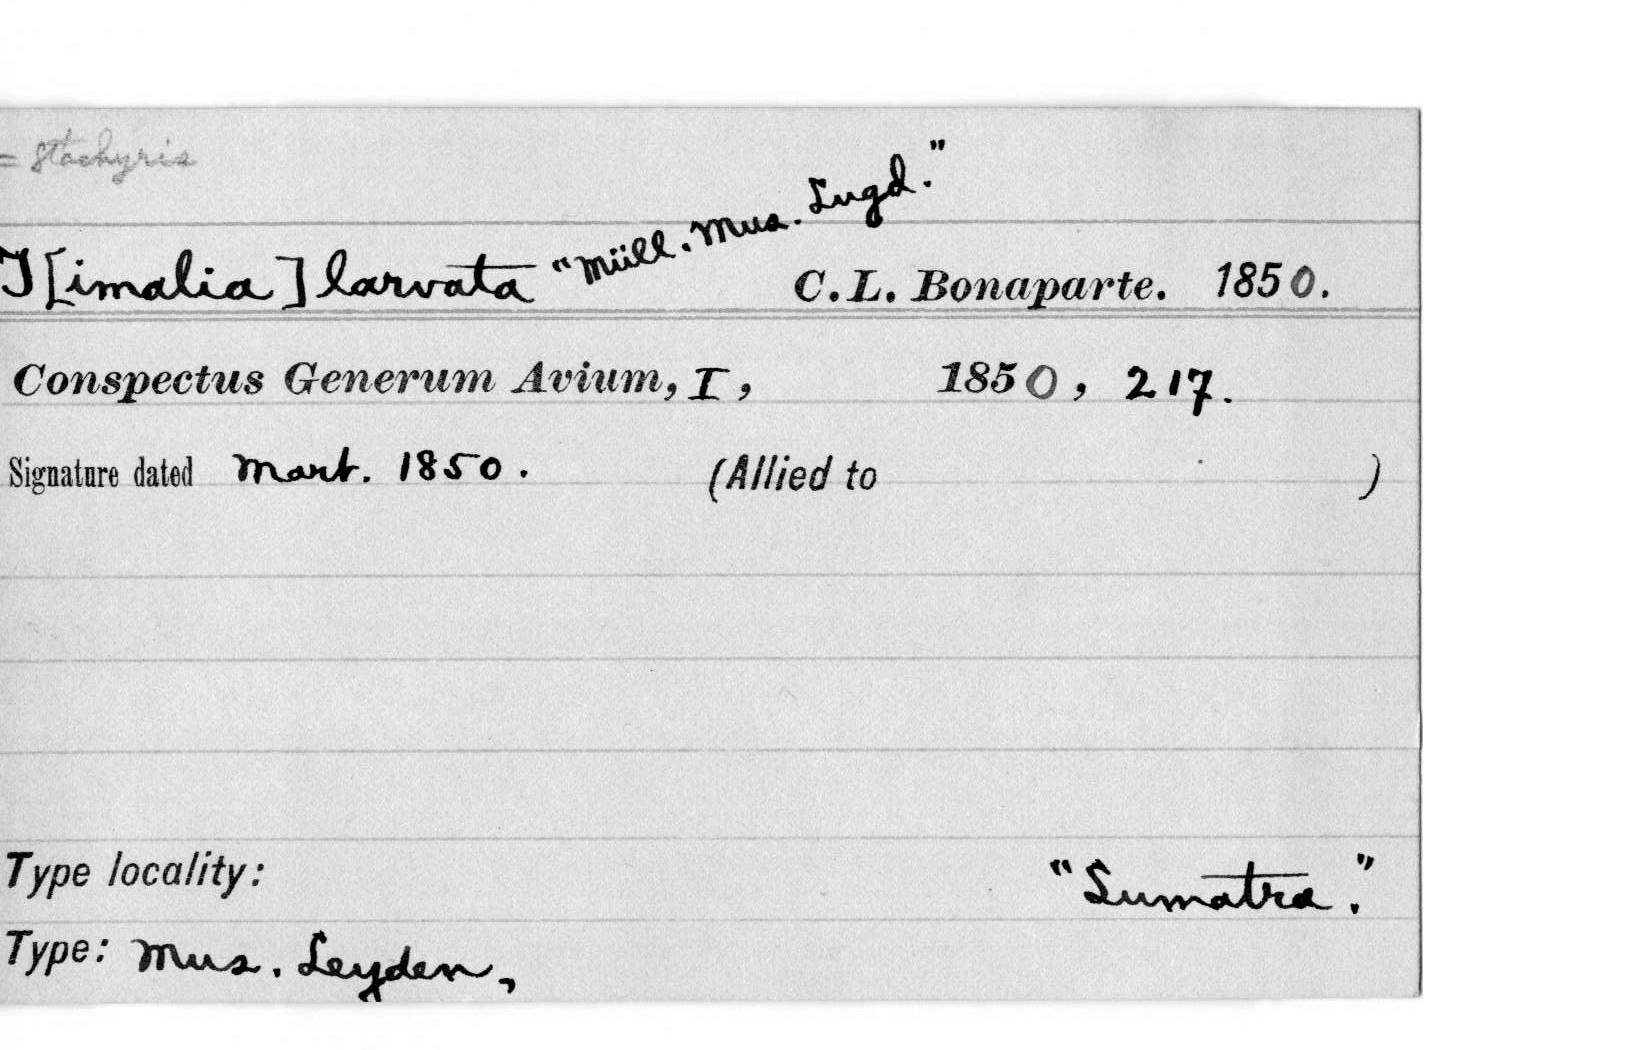 = Stachyris
T[imalia] larvata "Müll. Mus. Lugd." C. L. Bonaparte. 1850.
Conspectus Generum Avium, I, 1850, 217.
Signature dated Mart. 1850. (Allied to )
Type locality: "Sumatra."
Type: Mus. Leyden,